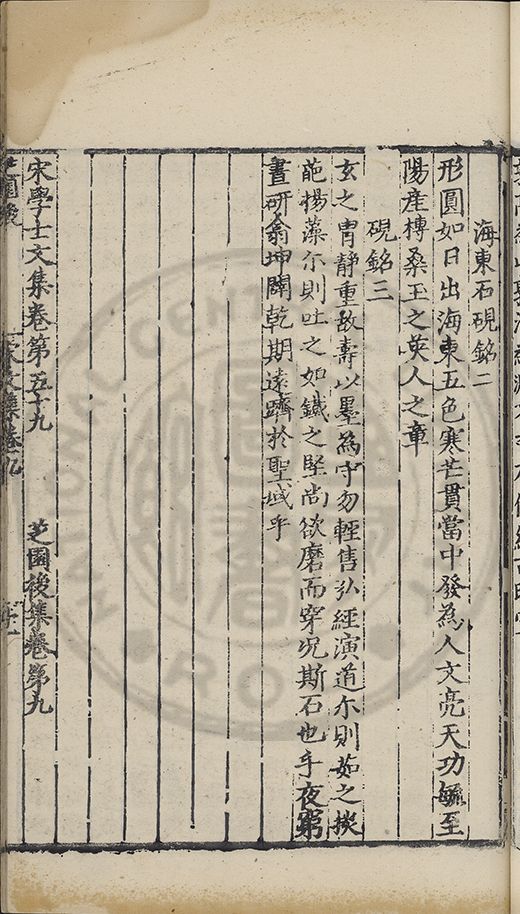 海東石硯銘二
形圓如日出海東五色寒芒貫當中發為人文亮天功毓至
陽產榑桑王之英人之章
硯銘三
玄之胄靜重故壽以墨為守勿輕售弘經演道尓則茹之掞
葩揚藻尓則吐之如鐵之堅尚欲磨而穿況斯石也乎夜窮
晝研翕坤闢乾期遠躋於聖域乎
宋學士文集卷第五十九 芝園後集卷第九